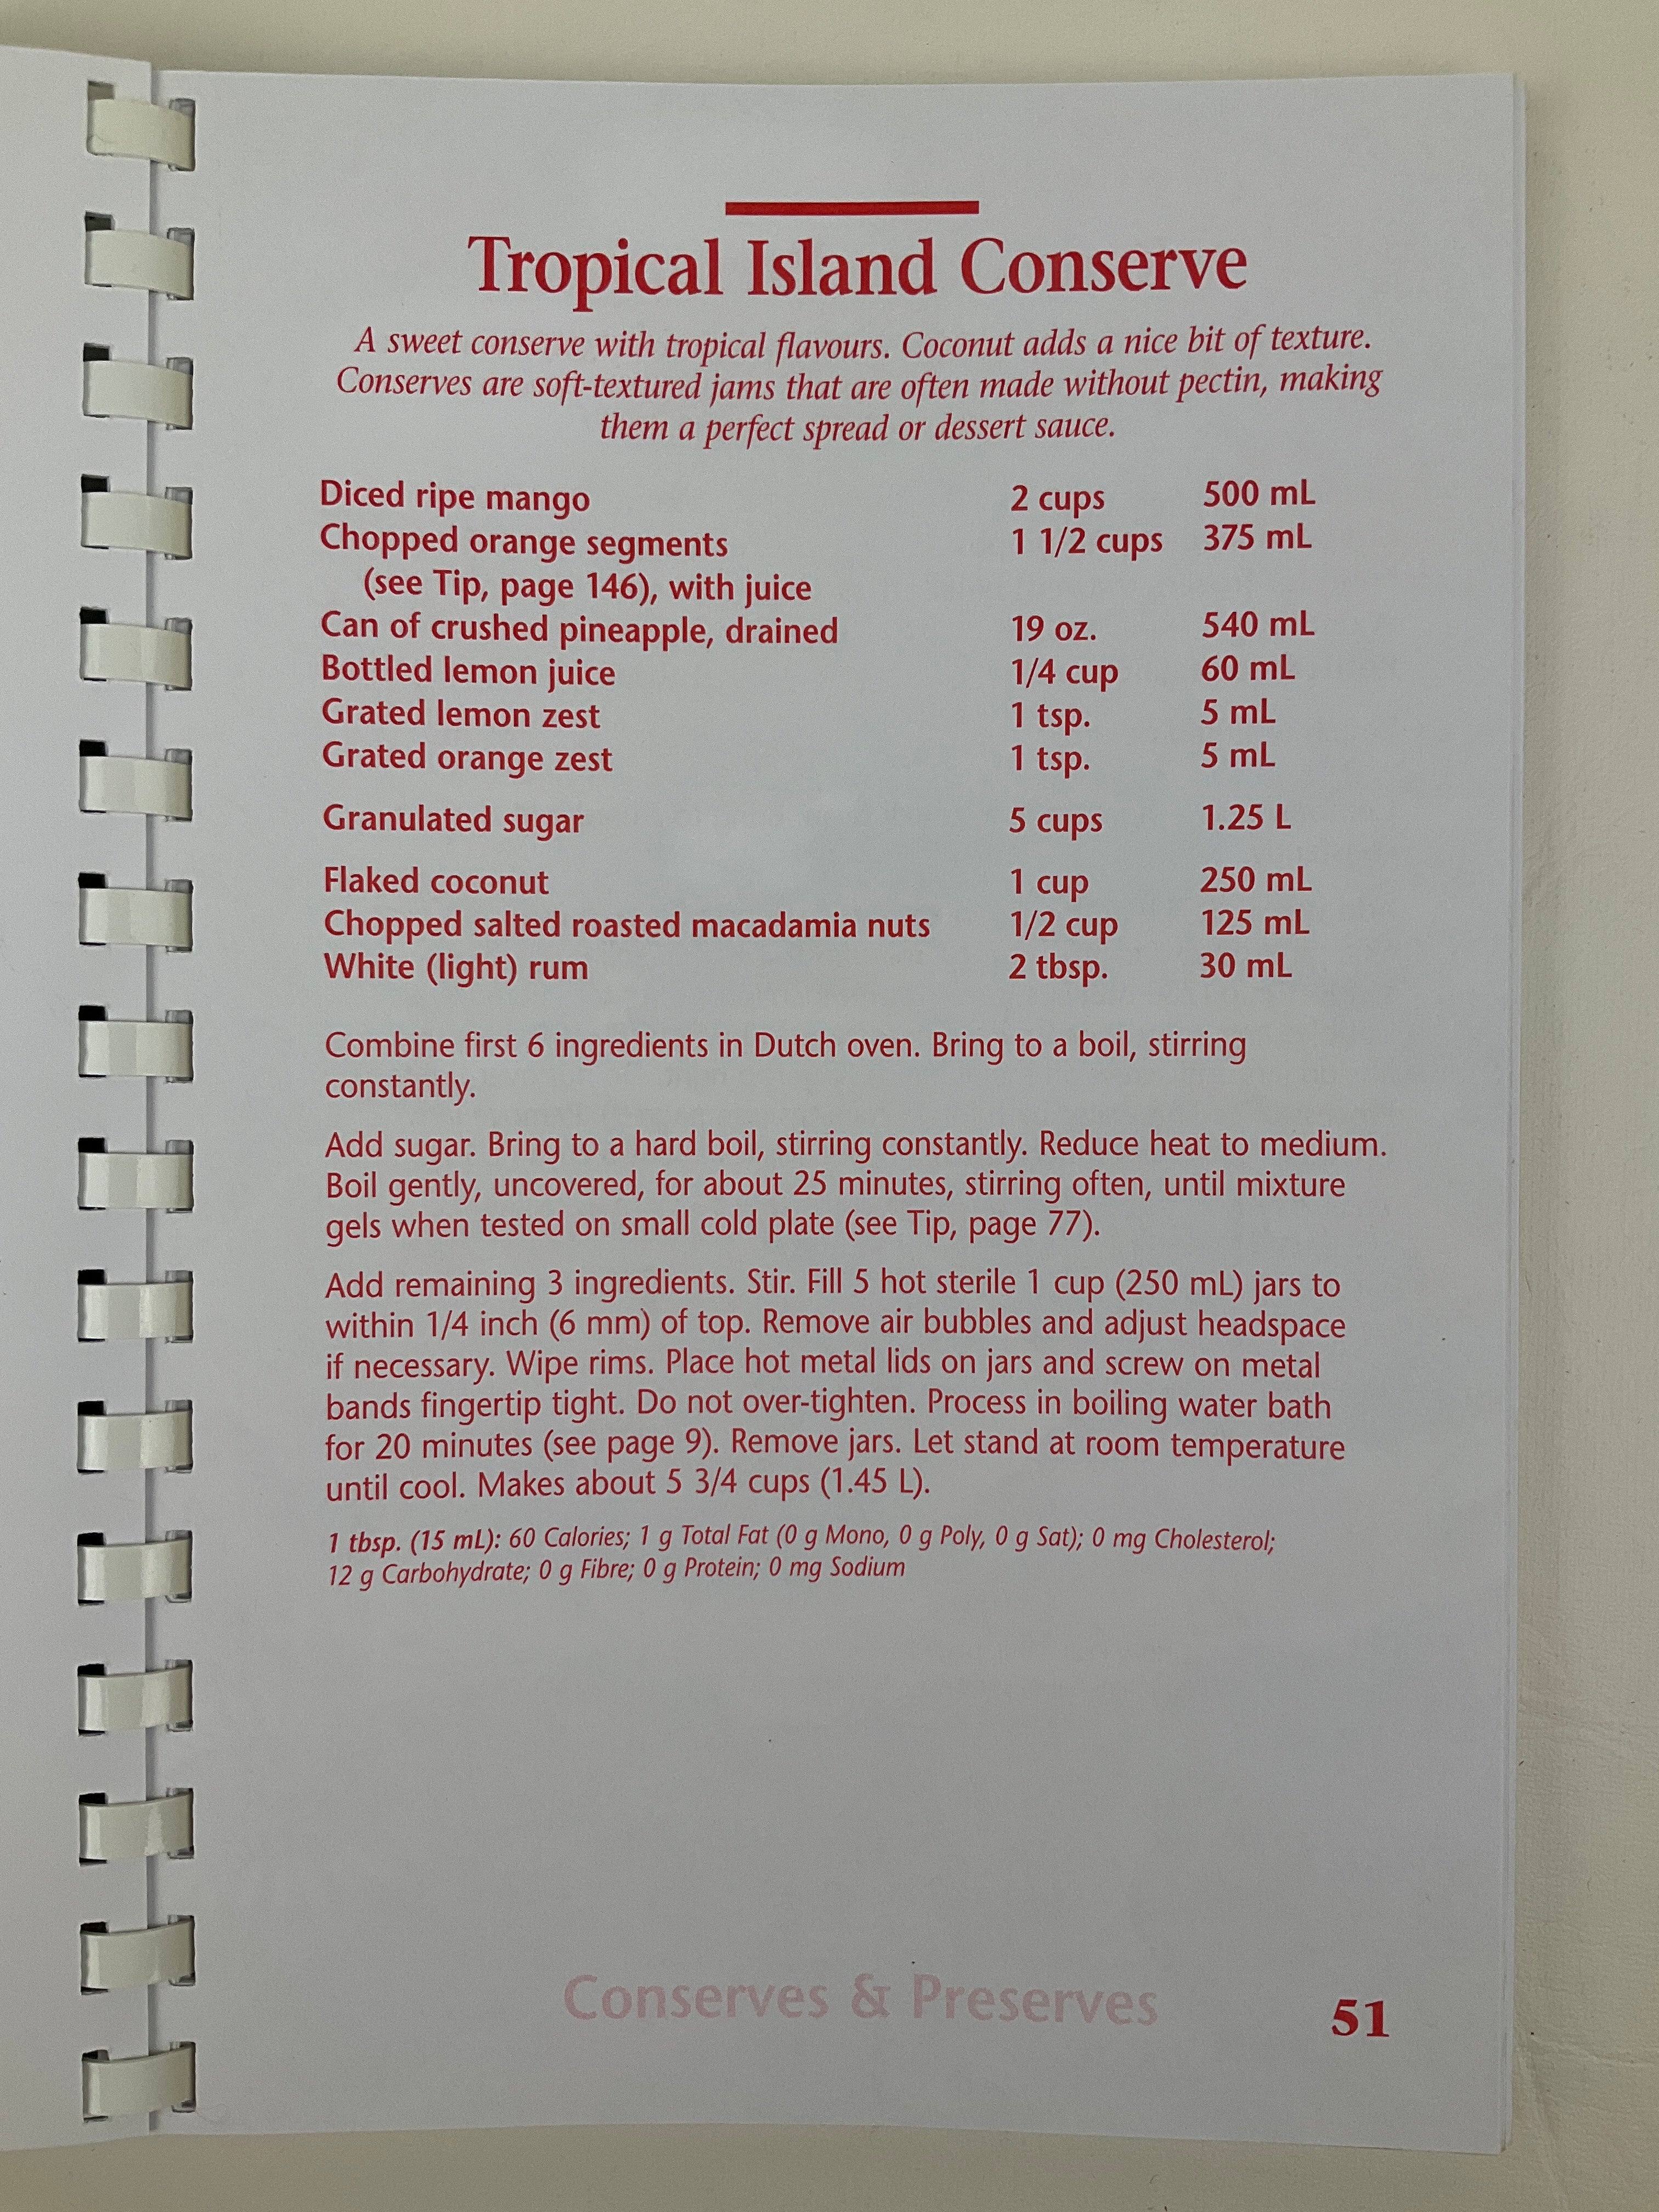 Tropical Island Conserve
A sweet conserve with tropical flavours. Coconut adds a nice bit of texture.
Conserves are soft-textured jams that are often made without pectin, making
them a perfect spread or dessert sauce.
Diced ripe mango 2 cups 500 mL
Chopped orange segments 1 1/2 cups 375 mL
(see Tip, page 146), with juice
Can of crushed pineapple, drained 19 oz. 540 mL
Bottled lemon juice 1/4 cup 60 mL
Grated lemon zest 1 tsp. 5 mL
Grated orange zest 1 tsp. 5 mL
Granulated sugar 5 cups 1.25 L
Flaked coconut 1 cup 250 mL
Chopped salted roasted macadamia nuts 1/2 cup 125 mL
White (light) rum 2 tbsp. 30 mL
Combine first 6 ingredients in Dutch oven. Bring to a boil, stirring
constantly.
Add sugar. Bring to a hard boil, stirring constantly. Reduce heat to medium.
Boil gently, uncovered, for about 25 minutes, stirring often, until mixture
gels when tested on small cold plate (see Tip, page 77).
Add remaining 3 ingredients. Stir. Fill 5 hot sterile 1 cup (250 mL) jars to
within 1/4 inch (6 mm) of top. Remove air bubbles and adjust headspace
if necessary. Wipe rims. Place hot metal lids on jars and screw on metal
bands fingertip tight. Do not over-tighten. Process in boiling water bath
for 20 minutes (see page 9). Remove jars. Let stand at room temperature
until cool. Makes about 5 3/4 cups (1.45 L).
1 tbsp. (15 mL): 60 Calories; 1 g Total Fat (0 g Mono, 0 g Poly, 0 g Sat); 0 mg Cholesterol;
12 g Carbohydrate; 0 g Fibre; 0 g Protein; 0 mg Sodium
Conserves & Preserves 51